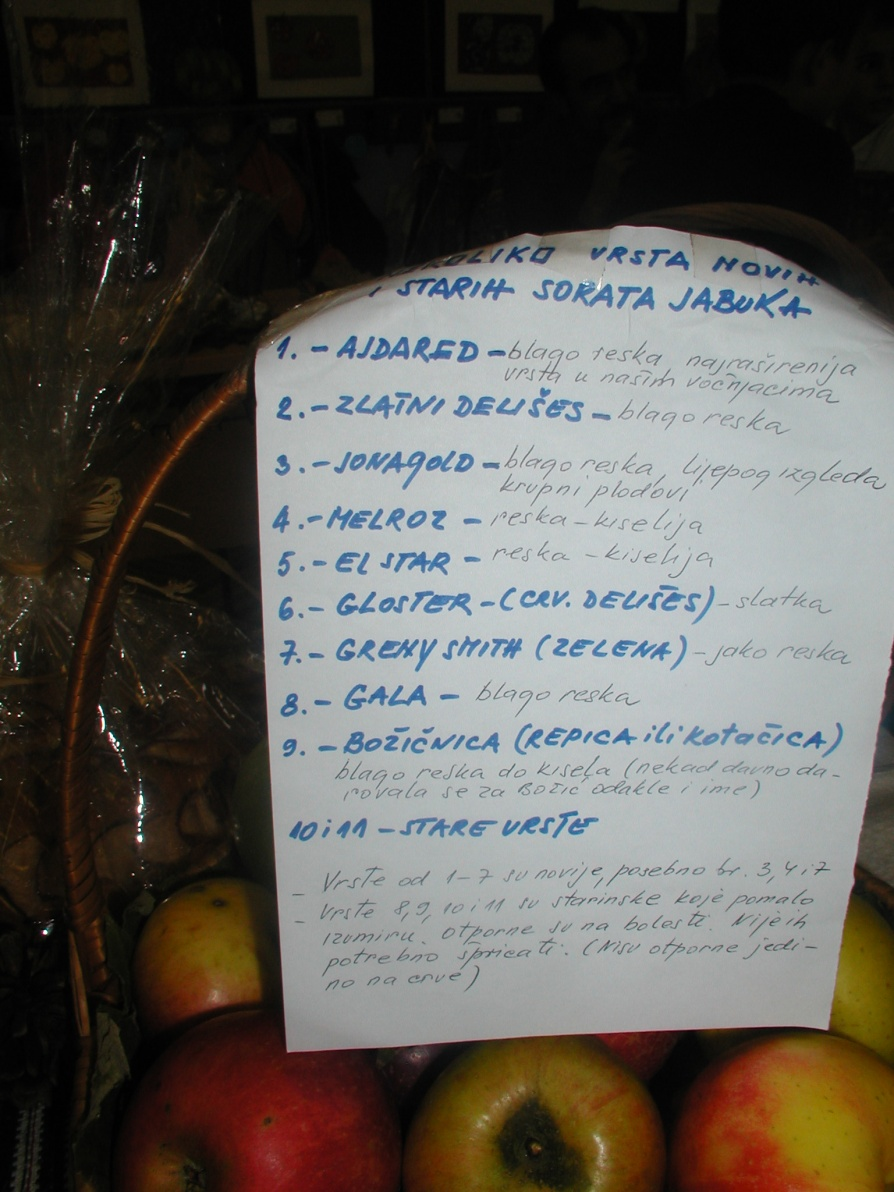 VRSTA NOVIH
I STARIH SORATA JABUKA
1. - AJDARED - blago reska, najraširenija
vrsta u našim voćnjacima
2. - ZLATNI DELIŠES - blago reska
3. - JONAGOLD - blago reska, lijepog izgleda
krupni plodovi
4. - MELROZ - reska - kiselija
5. - EL STAR - reska - kiselija
6. - GLOSTER - (CRV. DELIŠES) - slatka
7. - GRENY SMITH (ZELENA) - jako reska
8. - GALA - blago reska
9. - BOŽIČNICA (REPICA ili KOTAČICA)
blago reska do kisela (nekad davno da-
rovala se za Božić odakle i ime)
10 i 11 - STARE VRSTE
- Vrste od 1-7 su novije, posebno br. 3, 4 i 7
- Vrste 8, 9, 10 i 11 su starinske koje pomalo
izumiru. Otporne su na bolesti. Nije ih
potrebno špricati. (Nisu otporne jedi-
no na crve)